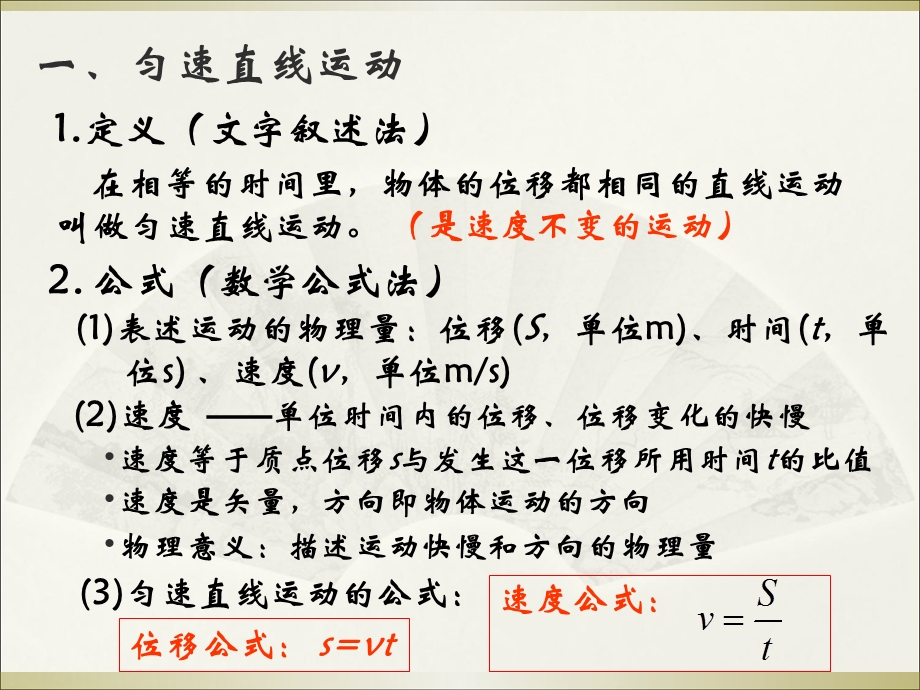 一、匀速直线运动
1.定义（文字叙述法）
在相等的时间里，物体的位移都相同的直线运动
叫做匀速直线运动。（是速度不变的运动）
2.公式（数学公式法）
(1)表述运动的物理量：位移(S，单位m)、时间(t，单
位s)、速度(v，单位m/s)
(2)速度 ——单位时间内的位移、位移变化的快慢
•速度等于质点位移s与发生这一位移所用时间t的比值
•速度是矢量，方向即物体运动的方向
•物理意义：描述运动快慢和方向的物理量
(3)匀速直线运动的公式：
速度公式： v = S/t
位移公式： s=vt